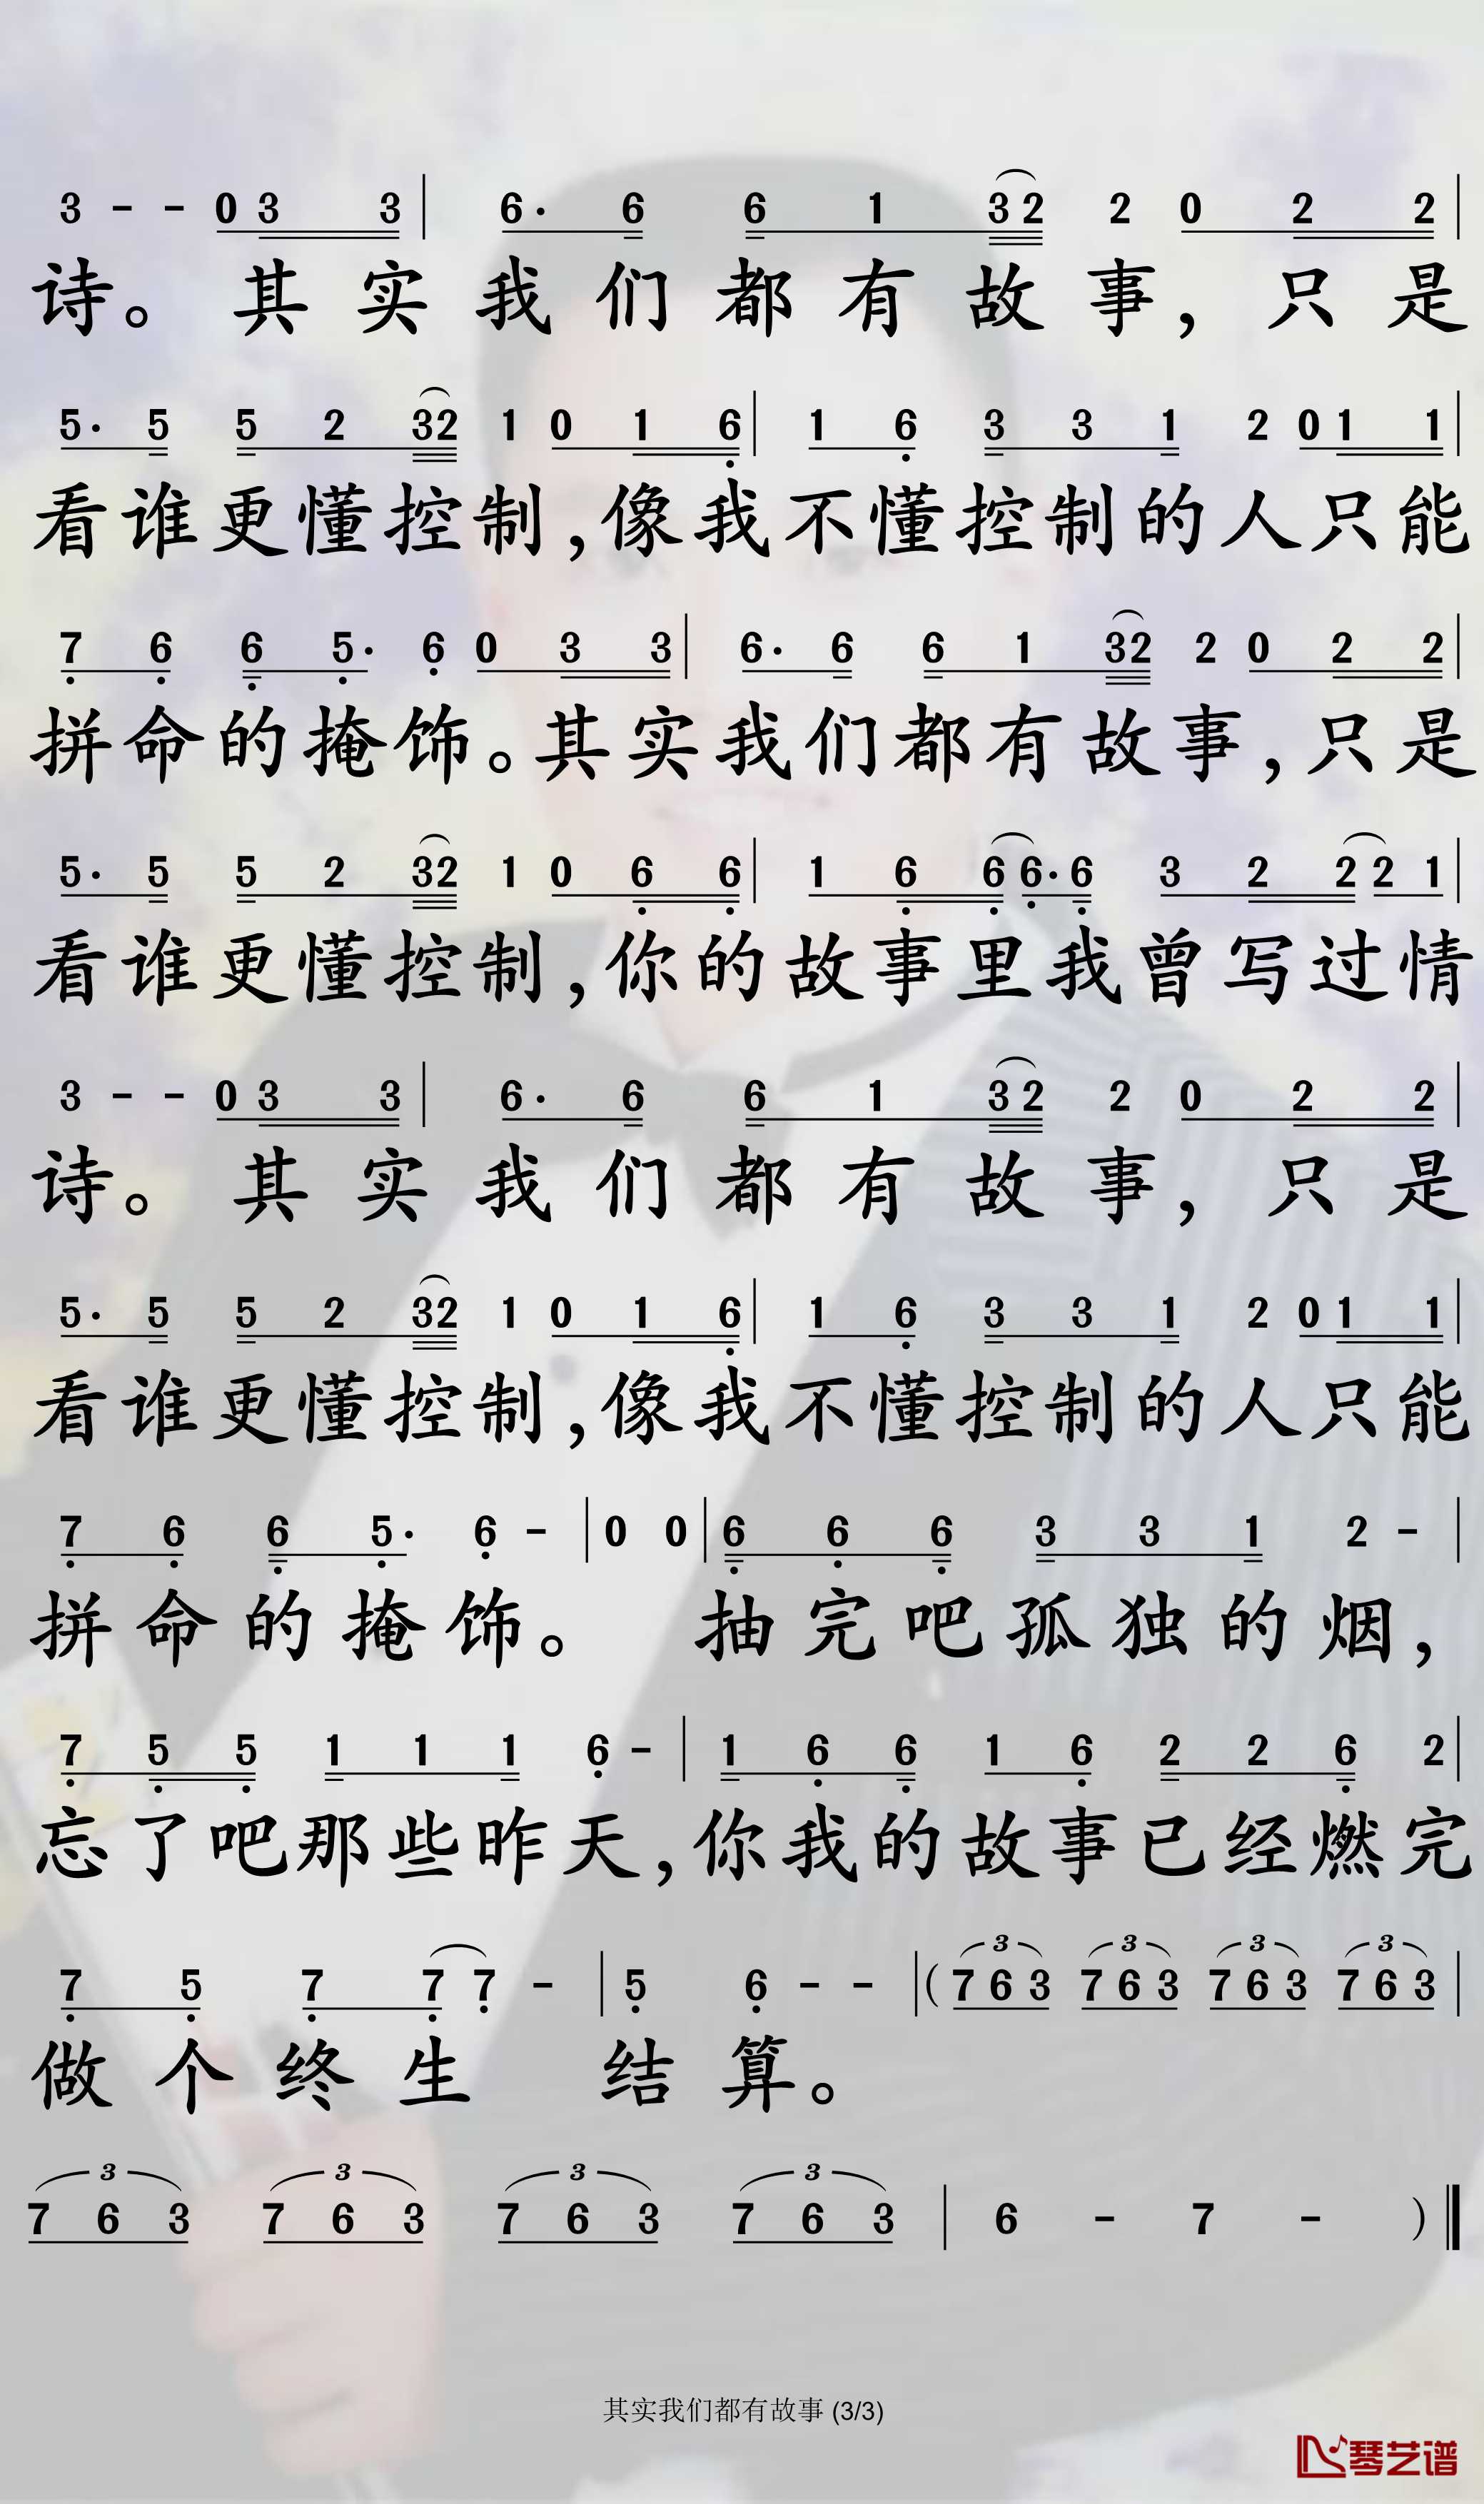 3 - - 0 3 3 | 6· 6 6 1 3 2 2 0 2 2 |
诗。其实我们都有故事，只是
5· 5 5 2 3 2 1 0 1 6 | 1 6 3 3 1 2 0 1 1 |
看谁更懂控制，像我不懂控制的人只能
7 6 6 5· 6 0 3 3 | 6· 6 6 1 3 2 2 0 2 2 |
拼命的掩饰。其实我们都有故事，只是
5· 5 5 2 3 2 1 0 6 6 | 1 6 6 6· 6 3 2 2 2 1 |
看谁更懂控制，你的故事里我曾写过情
3 - - 0 3 3 | 6· 6 6 1 3 2 2 0 2 2 |
诗。其实我们都有故事，只是
5· 5 5 2 3 2 1 0 1 6 | 1 6 3 3 1 2 0 1 1 |
看谁更懂控制，像我不懂控制的人只能
7 6 6 5· 6 - | 0 0 | 6 6 6 3 3 1 2 - |
拼命的掩饰。抽完吧孤独的烟，
7 5 5 1 1 1 6 - | 1 6 6 1 6 2 2 6 2 |
忘了吧那些昨天，你我的故事已经燃完
3 3 3 3
7 5 7 7 7 - | 5 6 - - | (7 6 3 7 6 3 7 6 3 7 6 3 |
做个终生结算。
3 3 3 3
7 6 3 7 6 3 7 6 3 7 6 3 | 6 - 7 - )
其实我们都有故事 (3/3)
琴艺谱